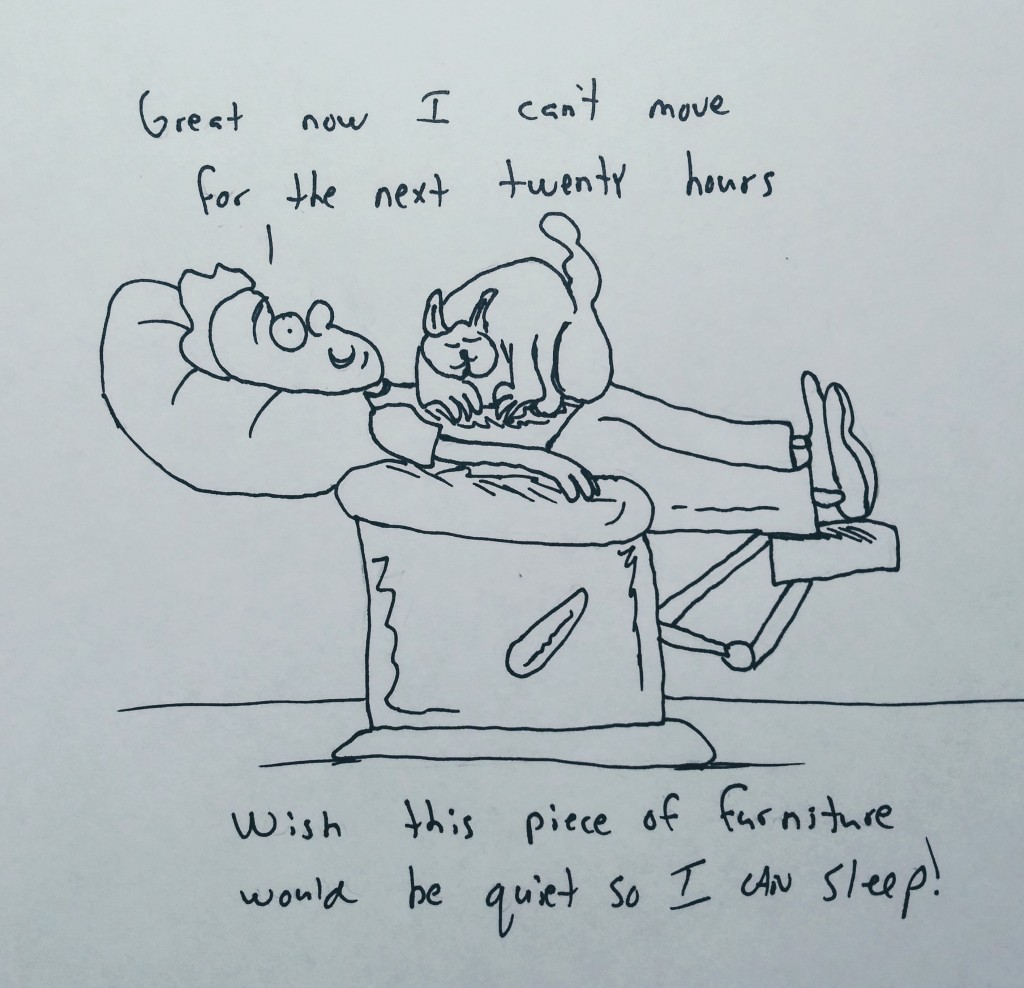 Great now I can't move
for the next twenty hours
Wish this piece of furniture
would be quiet so I CAN sleep!